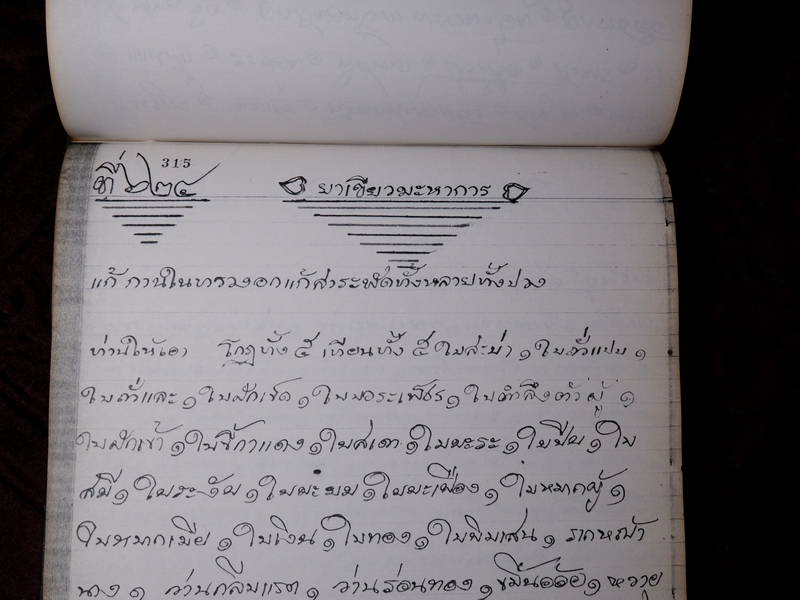 315
ที่ ๖๒๕ ยาเขียวมะหากาจร
แก้ กานในทรวงอกแก้สาระพัดทั้งหลายทั้งปวง
ท่านให้เอา โกฏทั้ง ๕ เทียนทั้ง ๕ ใบสะบ้า ๑ ใบถั่วแปบ ๑
ใบถั่วและ ๑ ใบผักเขด ๑ ใบบอระเพ็ชร ๑ ใบตำลึงตัวผู้ ๑
ใบผักเข้า ๑ ใบขี้กาแดง ๑ ใบสเดา ๑ ใบมะระ ๑ ใบปีบ ๑ ใบ
สมี ๑ ใบระงับ ๑ ใบมะยม ๑ ใบมะเฟือง ๑ ใบหมากผู้ ๑
ใบหมากเมีย ๑ ใบเงิน ๑ ใบทอง ๑ ใบพิมเสน ๑ รากหญ้า
นาง ๑ ว่านกลีบแรด ๑ ว่านร่อนทอง ๑ ขมิ้นอ้อย ๑ หวาย